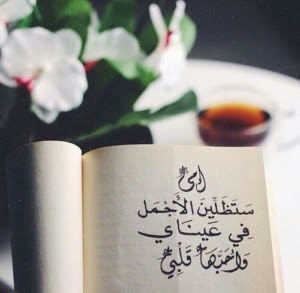 أمي
ستظلين الأجمل
في عيناي
وأحبها قلبي